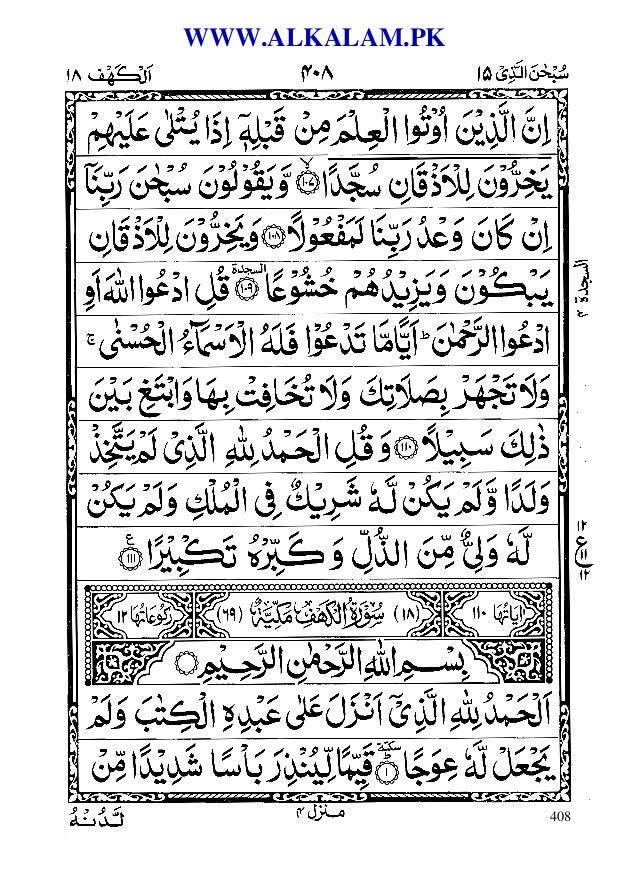 WWW.ALKALAM.PK
سُبْحٰنَ الَّذِیْۤ ۱۵
۴۰۸
اَلْكَهْف ۱۸
اِنَّ الَّذِیْنَ اُوْتُوا الْعِلْمَ مِنْ قَبْلِهٖۤ اِذَا یُتْلٰی عَلَیْهِمْ
یَخِرُّوْنَ لِلْاَذْقَانِ سُجَّدًا ۙ﴿۱۰۷﴾ وَّیَقُوْلُوْنَ سُبْحٰنَ رَبِّنَاۤ
اِنْ كَانَ وَعْدُ رَبِّنَا لَمَفْعُوْلًا ﴿۱۰۸﴾ وَیَخِرُّوْنَ لِلْاَذْقَانِ
یَبْكُوْنَ وَیَزِیْدُهُمْ خُشُوْعًا السجدة ﴿۱۰۹﴾ قُلِ ادْعُوا اللّٰهَ اَوِ
السجدة ۴
ادْعُوا الرَّحْمٰنَ ؕ اَیًّامَّا تَدْعُوْا فَلَهُ الْاَسْمَآءُ الْحُسْنٰی ۚ
وَلَا تَجْهَرْ بِصَلَاتِكَ وَلَا تُخَافِتْ بِهَا وَابْتَغِ بَیْنَ
ذٰلِكَ سَبِیْلًا ﴿۱۱۰﴾ وَقُلِ الْحَمْدُ لِلّٰهِ الَّذِیْ لَمْ یَتَّخِذْ
وَلَدًا وَّلَمْ یَكُنْ لَّهٗ شَرِیْكٌ فِی الْمُلْكِ وَلَمْ یَكُنْ
لَّهٗ وَلِیٌّ مِّنَ الذُّلِّ وَكَبِّرْهُ تَكْبِیْرًا ع ﴿۱۱۱﴾
۱۲
ع
۱۱
۱۲
اٰیَاتُهَا ۱۱۰ (۱۸) سُوْرَةُ الْكَهْفِ مَكِّیَّةٌ (۶۹) رُكُوْعَاتُهَا ۱۲
بِسْمِ اللّٰهِ الرَّحْمٰنِ الرَّحِیْمِ
اَلْحَمْدُ لِلّٰهِ الَّذِیْۤ اَنْزَلَ عَلٰی عَبْدِهِ الْكِتٰبَ وَلَمْ
یَجْعَلْ لَّهٗ عِوَجًا سكتة ؕ﴿۱﴾ قَیِّمًا لِّیُنْذِرَ بَاْسًا شَدِیْدًا مِّنْ
لَّدُنْهُ
منزل ۴
408